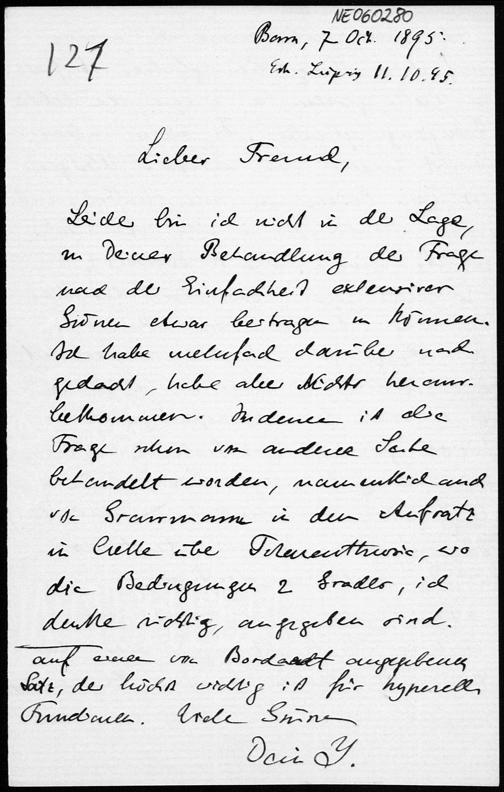 NE060280
127
Bonn, 7 Oct. 1895.
Erh. Leipzig 11.10.95.
Lieber Freund,
Leider bin ich nicht in der Lage,
zu Deiner Behandlung der Frage
nach der Einfachheit extensiver
Grössen etwas beitragen zu können.
Ich habe mehrfach darüber nach
gedacht, habe aber Nichts heraus-
bekommen. Indessen ist die
Frage schon von anderer Seite
behandelt worden, namentlich auch
von Grassmann in dem Aufsatz
in Crelle über, wo
die Bedingungen 2 Grades, ich
denke richtig, angegeben sind.
auf einen von Borchardt angegebenen
Satz, der höchst wichtig ist für
Functionen. Viele Grüsse
Dein